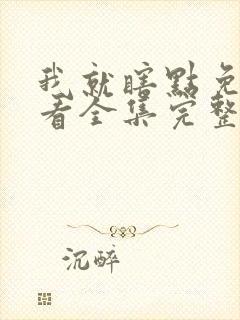 我就瞎點免
看全集完整
沉醉